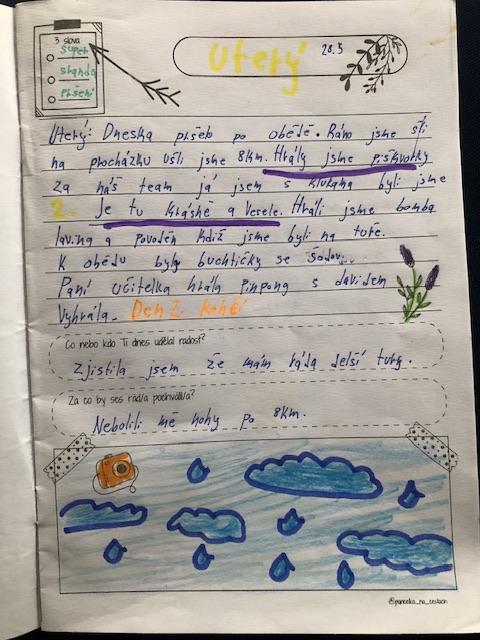 3 slova
super
standa
pršení
Úterý 28.5
Úterý: Dneska pršelo po obědě. Ráno jsme šli
na procházku ušli jsme 8km. Hrály jsme piškvorky
za náš team já jsem s klukama byli jsme
2. Je tu krásně a vesele. Hráli jsme bomba
lavina a povodeň když jsme byli na túře.
K obědu byly buchtičky se šodou..
Paní učitelka hrála pinpong s davidem
Vyhrála. Den 2. končí
Co nebo kdo Ti dnes udělal radost?
Zjistila jsem že mám ráda delší túry.
Za co by ses rád/a pochválil/a?
Nebolili mě nohy po 8km.
@pancelka_na_cestach